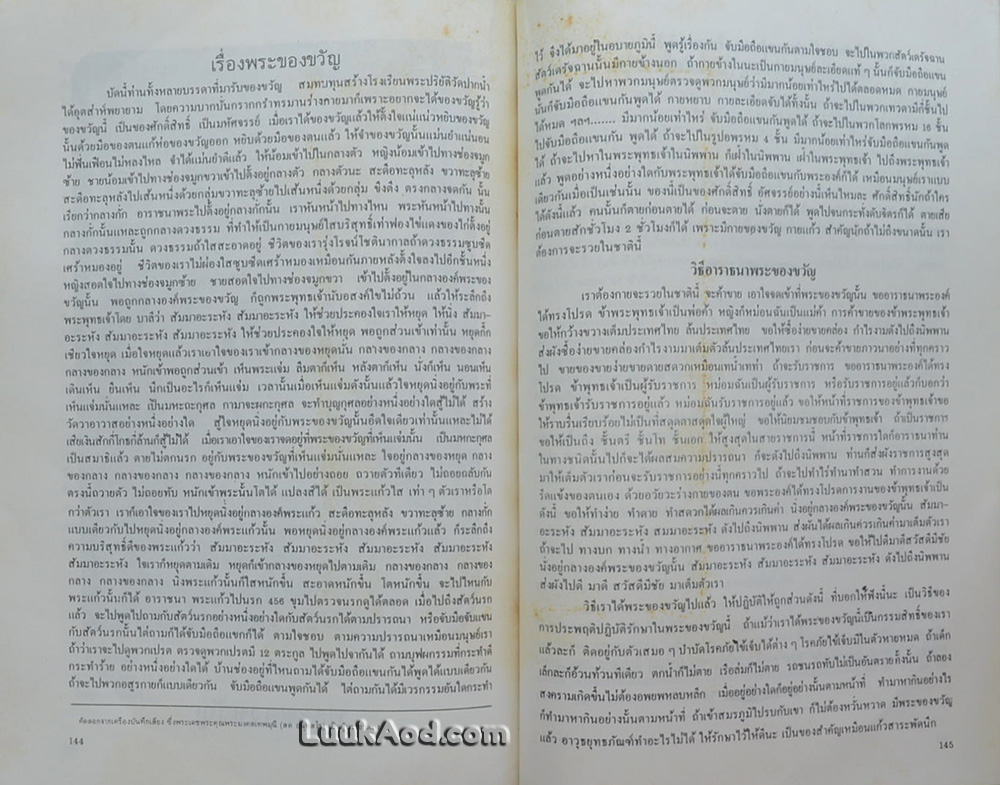 เรื่องพระของขวัญ
บัดนี้ท่านทั้งหลายบรรดาที่มารับของขวัญ สมทบทุนสร้างโรงเรียนพระปริยัติวัดปากน้ำ
ได้อุตส่าห์พยายาม โดยความบากบั่นกรากกรำทรมานร่างกายมาก็เพราะอยากจะได้ของขวัญรู้ว่า
ของขวัญนี้ เป็นของศักดิ์สิทธิ์ เป็นมหัศจรรย์ เมื่อเราได้ของขวัญแล้วให้ตั้งใจแน่แน่วหยิบของขวัญ
นั้นด้วยมือของตนแก้ห่อของขวัญออก หยิบด้วยมือของตนแล้ว ให้จำของขวัญนั้นแม่นยำแน่นอน
ไม่ฟั่นเฟือนไม่หลงใหล จำได้แม่นยำดีแล้ว ให้น้อมเข้าไปในกลางตัว หญิงน้อมเข้าไปทางช่องจมูก
ซ้าย ชายน้อมเข้าไปทางช่องจมูกขวาเข้าไปตั้งอยู่กลางตัว กลางตัวนะ สะดือทะลุหลัง ขวาทะลุซ้าย
สะดือทะลุหลังไปเส้นหนึ่งด้วยกลุ่มขวาทะลุซ้ายไปเส้นหนึ่งด้วยกลุ่ม ขึงตึง ตรงกลางจดกัน นั้น
เรียกว่ากลางกั๊ก อาราธนาพระไปตั้งอยู่กลางกั๊กนั้น เราหันหน้าไปทางไหน พระหันหน้าไปทางนั้น
กลางกั๊กนั้นแหละถูกกลางดวงธรรม ที่ทำให้เป็นกายมนุษย์ใสบริสุทธิ์เท่าฟองไข่แดงของไก่ตั้งอยู่
กลางดวงธรรมนั้น ดวงธรรมถ้าใสสะอาดอยู่ ชีวิตของเรารุ่งโรจน์โชตินาการถ้าดวงธรรมซูบซีด
เศร้าหมองอยู่ ชีวิตของเราไม่ผ่องใสซูบซีดเศร้าหมองเหมือนกันภายหลังตั้งใจลงไปอีกชั้นหนึ่ง
หญิงสอดใจไปทางช่องจมูกซ้าย ชายสอดใจไปทางช่องจมูกขวา เข้าไปตั้งอยู่ในกลางองค์พระของ
ขวัญนั้น พอถูกกลางองค์พระของขวัญ ก็ถูกพระพุทธเจ้านับอสงไขไม่ถ้วน แล้วให้ระลึกถึง
พระพุทธเจ้าโดย บาลีว่า สัมมาอะระหัง สัมมาอะระหัง ให้ช่วยประคองใจเราให้หยุด ให้นิ่ง สัมมา-
อะระหัง สัมมาอะระหัง สัมมาอะระหัง ให้ช่วยประคองใจให้หยุด พอถูกส่วนเข้าเท่านั้น หยุดกึ๊ก
เชียวใจหยุด เมื่อใจหยุดแล้วเราเอาใจของเราเข้ากลางของหยุดนั้น กลางของกลาง กลางของกลาง
กลางของกลาง หนักเข้าพอถูกส่วนเข้า เห็นพระแจ่ม ลืมตาก็เห็น หลังตาก็เห็น นั่งก็เห็น นอนเห็น
เดินเห็น ยืนเห็น นึกเป็นอะไรก็เห็นแจ่ม เวลานั้นเมื่อเห็นแจ่มดังนั้นแล้วใจหยุดนิ่งอยู่กับพระที่
เห็นแจ่มนั่นแหละ เป็นมหะกะกุศล กามาจะผกะกุศล จะทำบุญกุศลอย่างหนึ่งอย่างใดสู้ไม่ได้ สร้าง
วัดวาอาวาสอย่างหนึ่งอย่างใด สู้ใจหยุดนิ่งอยู่กับพระของขวัญนั้นอึดใจเดียวเท่านั้นและไม่ได้
เสียเงินสักกี่โกฏก็ล้านก็สู้ไม่ได้ เมื่อเราเอาใจของเราจดอยู่ที่พระของขวัญที่เห็นแจ่มนั้น เป็นมหกะกุศล
เป็นสมาธิแล้ว ตายไม่ตกนรก อยู่กับพระของขวัญที่เห็นแจ่มนั่นแหละ ใจอยู่กลางของหยุด กลาง
ของกลาง กลางของกลาง กลางของกลาง กลางของกลาง หนักเข้าไปอย่างถอย ถวายตัวทีเดียว ไม่ถอยกลับกัน
ตรงนี้ถวายตัว ไม่ถอยทับ หนักเข้าพระนั้นโตได้ แปลงส์ได้ เป็นพระแก้วใส เท่า ๆ ตัวเราหรือโต
กว่าตัวเรา เราก็เอาใจของเราไปหยุดนิ่งอยู่กลางองค์พระแก้ว สะดือทะลุหลัง ขวาทะลุซ้าย กลางกั๊ก
แบบเดียวกับไปหยุดนิ่งอยู่กลางองค์พระแก้วนั้น พอหยุดนิ่งอยู่กลางองค์พระแก้วแล้ว ก็ระลึกถึง
ความบริสุทธิ์ดีของพระแก้วว่า สัมมาอะระหัง สัมมาอะระหัง สัมมาอะระหัง สัมมาอะระหัง
สัมมาอะระหัง ใจเราก็หยุดตามเดิม หยุดก็เข้ากลางของหยุดไปตามเดิม กลางของกลาง กลางของ
กลาง กลางของกลาง นิ่งพระแก้วนั้นก็ใสหนักขึ้น สะอาดหนักขึ้น โตหนักขึ้น จะไปไหนกับ
พระแก้วนั้นก็ได้ อาราธนา พระแก้วไปนรก 456 ขุมไปตรวจนรกดูได้ตลอด เมื่อไปถึงสัตว์นรก
แล้ว จะไปพูดไปถามกับสัตว์นรกอย่างหนึ่งอย่างใดกับสัตว์นรกได้ตามปรารถนา หรือจับมือจับแขน
กับสัตว์นรกนั้นไต่ถามก็ได้จับมือถือแขกก็ได้ ตามใจชอบ ตามความปรารถนาเหมือนมนุษย์เรา
ถ้าว่าเราจะไปดูพวกเปรต ตรวจดูพวกเปรตมี 12 ตระกูล ไปพูดไปจากันได้ ถามบุพพกรรมที่กระทำดี
กระทำร้าย อย่างหนึ่งอย่างใดได้ บ้านช่องอยู่ที่ไหนถามได้จับมือถือแขนกันได้พูดได้แบบเดียวกัน
ถ้าจะไปพวกอสุรกายก็แบบเดียวกัน จับมือถือแขนพูดกันได้ ไต่ถามกันได้มีเวรกรรมอันใดกระทำ
คัดลอกจากเครื่องบันทึกเสียง ซึ่งพระเดชพระคุณพระมงคลเทพมุนี
144
LuukAod.com
ไว้ จึงได้มาอยู่ในอบายภูมินี้ พูดรู้เรื่องกัน จับมือถือแขนกันตามใจชอบ จะไปในพวกสัตว์เดรัจฉาน
สัตว์เดรัจฉานนั้นมีกายข้างนอก ถ้ากายข้างในนะเป็นกายมนุษย์ละเอียดแท้ ๆ นั้นก็จับมือถือแขน
พูดกันได้ จะไปหาพวกมนุษย์ตรวจดูพวกมนุษย์ว่ามีมากน้อยเท่าไหร่ไปได้ตลอดหมด กายมนุษย์
นั้นก็จับมือถือแขนพูดได้ กายหยาบ กายละเอียดจับได้ทั้งนั้น ถ้าจะไปในพวกเทวดามีกี่ชั้นไป
ได้หมด ฯลฯ....... มีมากน้อยเท่าไหร่ จับมือถือแขนกันพูดได้ ถ้าจะไปพวกโลกพรหม 16 ชั้น
จับมือถือแขนกัน พูดได้ ถ้าจะไปในรูปอพรหม 4 ชั้น มีมากน้อยเท่าไหร่จับมือถือแขนกันพูด
ได้ ถ้าจะไปหาในพระพุทธเจ้าในนิพพาน ก็เฝ้าในนิพพาน เฝ้าในพระพุทธเจ้า ไปถึงพระพุทธเจ้า
แล้ว พูดอย่างหนึ่งอย่างใดกับพระพุทธเจ้าได้จับมือถือแขนกับพระองค์ก็ได้ เหมือนมนุษย์เราแบบ
เดียวกันเมื่อเป็นเช่นนั้น ของนี้เป็นของศักดิ์สิทธิ์ อัศจรรย์อย่างนี้เห็นไหมละ ศักดิ์สิทธิ์นักถ้าใคร
ได้ดังนี้แล้ว คนนั้นก็ตายก่อนตายได้ ก่อนจะตาย นั่งตายก็ได้ พูดไปจนกระทั่งดับจิตรก็ได้ ตายเสีย
ก่อนตายสักชั่วโมง 2 ชั่วโมงก็ได้ เพราะมีกายของขวัญ กายแก้ว สำคัญนักถ้าไม่ถึงขนาดนั้น เรา
ต้องการจะรวยในชาตินี้
วิธีอาราธนาพระของขวัญ
เราต้องกายจะรวยในชาตินี้ จะค้าขาย เอาใจจดเข้าที่พระของขวัญนั้น ขออาราธนาพระองค์
ได้ทรงโปรด ข้าพระพุทธเจ้าเป็นพ่อค้า หญิงก็หม่อมฉันเป็นแม่ค้า การค้าขายของข้าพระพุทธเจ้า
ขอให้กว้างขวางเต็มประเทศไทย ล้นประเทศไทย ขอให้ซื้อง่ายขายคล่อง กำไรงามดังไปถึงนิพพาน
ส่งผังซื้อง่ายขายคล่องกำไรงามมาเต็มตัวล้นประเทศไทยเรา ก่อนจะค้าขายภาวนาอย่างที่ทุกคราว
ไป ขายของขายง่ายขายดายสดวกเหมือนเทน้ำเทท่า ถ้าจะรับราชการ ขออาราธนาพระองค์ได้ทรง
โปรด ข้าพุทธเจ้าเป็นผู้รับราชการ หม่อมฉันเป็นผู้รับราชการ หรือรับราชการอยู่แล้วก็บอกว่า
ข้าพุทธเจ้ารับราชการอยู่แล้ว หม่อมฉันรับราชการอยู่แล้ว ขอให้หน้าที่ราชการของข้าพุทธเจ้าขอ
ให้ราบรื่นเรียบร้อยไม่เป็นที่สดุดตาสดุดใจผู้ใหญ่ ขอให้นิยมชมชอบกับข้าพุทธเจ้า ถ้าเป็นราชการ
ขอให้เป็นถึง ชั้นตรี ชั้นโท ชั้นเอก ให้สูงสุดในสายราชการนี้ หน้าที่ราชการใดก็อาราธนาท่าน
ในทางชนิดนั้นไปก็จะได้ผลสมความปรารถนา ก็จะดังไปถึงนิพพาน ท่านก็ส่งผังราชการสูงสุด
มาให้เต็มตัวเราก่อนจะรับราชการอย่างนี้ทุกคราวไป ถ้าจะไปทำไร่ทำนาทำสวน ทำการงานด้วย
รีดแข้งของตนเอง ด้วยอวัยวะร่างกายของตน ขอพระองค์ได้ทรงโปรดการงานของข้าพุทธเจ้าเป็น
ดังนี้ ขอให้ทำง่าย ทำดาย ทำสดวกได้ผลเกินควรเกินค่า นิ่งอยู่กลางองค์พระของขวัญนั้น สัมมา-
อะระหัง สัมมาอะระหัง สัมมาอะระหัง ดังไปถึงนิพพาน ส่งผันได้ผลเกินควรเกินค่ามาเต็มตัวเรา
ถ้าจะไป ทางบก ทางน้ำ ทางอากาศ ขออาราธนาพระองค์ได้ทรงโปรด ขอให้ไปดีมาดีสวัสดีมีชัย
นิ่งอยู่กลางองค์พระของขวัญนั้น สัมมาอะระหัง สัมมาอะระหัง สัมมาอะระหัง ดังไปถึงนิพพาน
ส่งผังไปดี มาดี สวัสดีมีชัย มาเต็มตัวเรา
วิธีเราได้พระของขวัญไปแล้ว ให้ปฏิบัติให้ถูกส่วนดังนี้ ที่บอกให้ฟังนี้นะ เป็นวิธีของ
การประพฤติปฏิบัติรักษาในพระของขวัญนี้ ถ้าแม้ว่าเราได้พระของขวัญนี้เป็นกรรมสิทธิ์ของเรา
แล้วละก็ ติดอยู่กับตัวเสมอ ๆ บำบัดโรคภัยไข้เจ็บได้ต่าง ๆ โรคภัยไข้เจ็บมีในตัวหายหมด ถ้าเด็ก
เล็กละก็อ้วนท้วนทีเดียว ตกน้ำก็ไม่ตาย เรือล่มก็ไม่ตาย รถชนรถทับไม่เป็นอันตรายทั้งนั้น ถ้าลอง
สงครามเกิดขึ้นไม่ต้องอพยพหลบหลีก เมื่ออยู่อย่างใดก็อยู่อย่างนั้นตามหน้าที่ ทำมาหากินอย่างไร
ก็ทำมาหากินอย่างนั้นตามหน้าที่ ถ้าเข้าสมรภูมิไปรบกับเขา ก็ไม่ต้องหวั่นหวาด มีพระของขวัญ
แล้ว อาวุธยุทธภัณฑ์ทำอะไรไม่ได้ ให้รักษาไว้ให้ดีนะ เป็นของสำคัญเหมือนแก้วสาระพัดนึก
145